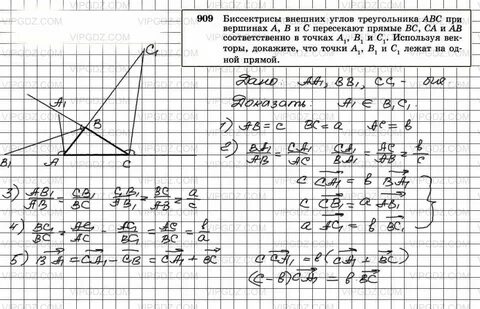 909 Биссектрисы внешних углов треугольника ABC при
вершинах A, B и C пересекают прямые BC, CA и AB
соответственно в точках A₁, B₁ и C₁. Используя век-
торы, докажите, что точки A₁, B₁ и C₁ лежат на од-
ной прямой.
C₁
A₁
B
B₁ A C
Дано: AA₁, BB₁, CC₁ -
Доказать: A₁ ∈ B₁C₁
1) AB = c BC = a AC = b
2) BA₁/AB = CA₁/AC CA₁/BA₁ = AC/AB = b/c
c CA₁ = b BA₁
3) AB₁/AB = CB₁/BC CB₁/AB₁ = BC/AB = a/c
c CB₁ = a AB₁
4) BC₁/BC = AC₁/AC AC₁/BC₁ = AC/BC = b/a
a AC₁ = b BC₁
5) BA₁ = CA₁ - CB = CA₁ + BC
c CA₁ = b(CA₁ + BC)
(c-b)CA₁ = b BC
VIPGDZ.COM